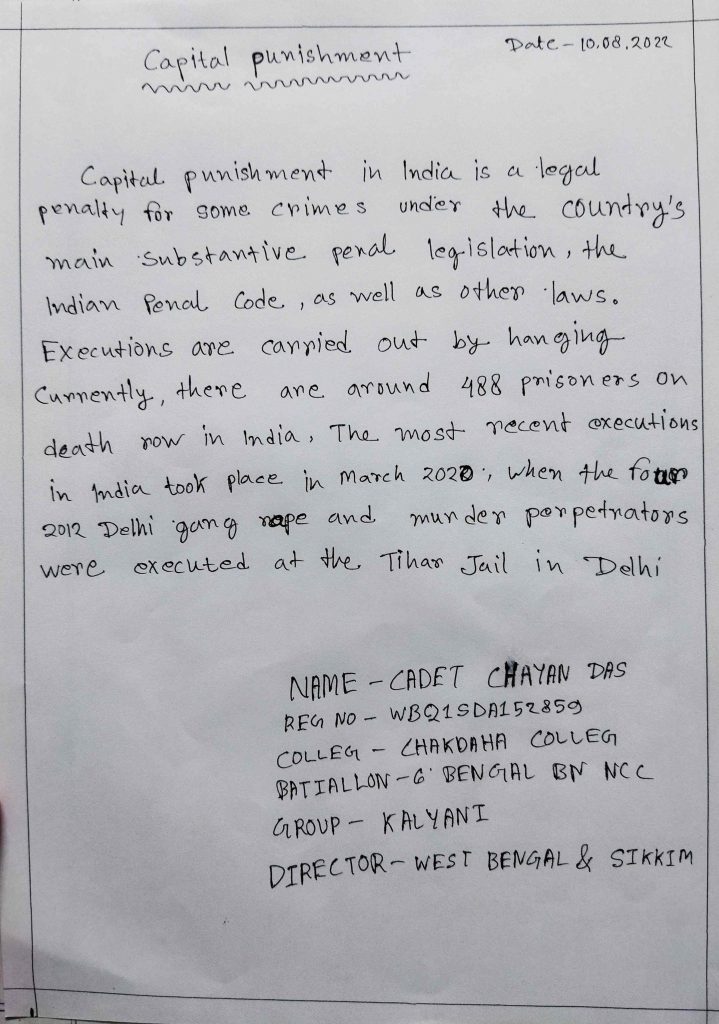 Capital punishment
Date - 10.08.2022
Capital punishment in India is a legal
penalty for some crimes under the country's
main substantive penal legislation, the
Indian Penal Code, as well as other laws.
Executions are carried out by hanging
Currently, there are around 488 prisoners on
death row in India, The most recent executions
in India took place in March 2020, when the four
2012 Delhi gang rape and murder perpetrators
were executed at the Tihar Jail in Delhi
NAME - CADET CHAYAN DAS
REG NO - WB21SDA152859
COLLEG - CHAKDAHA COLLEG
BATIALLON - 6 BENGAL BN NCC
GROUP - KALYANI
DIRECTOR - WEST BENGAL & SIKKIM